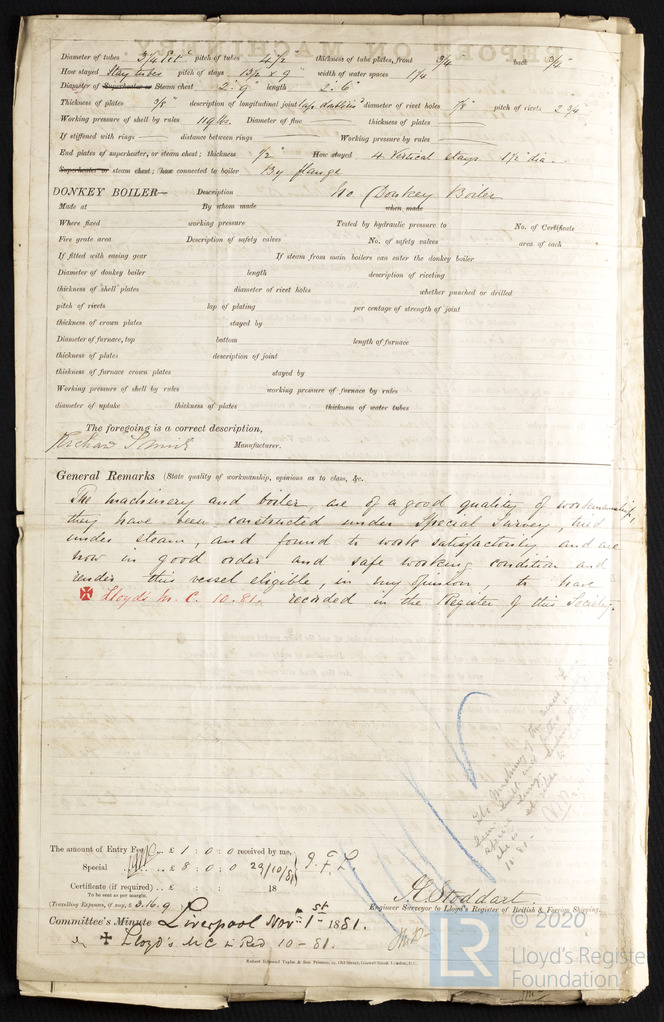 Diameter of tubes 3 1/4 Ext pitch of tubes 4 1/2 thickness of tube plates, front 3/4 back 3/4"
How stayed Stay tubes pitch of stays 13 1/2 x 9" width of water spaces 1 1/4
Diameter of Superheater or Steam chest 2' 9" length 2' 6"
Thickness of plates 3/8" description of longitudinal joint Lap diameter of rivet holes 7/8" pitch of rivets 2 3/4"
Working pressure of shell by rules 119 lbs. Diameter of flue thickness of plates
If stiffened with rings distance between rings Working pressure by rules
End plates of superheater, or steam chest; thickness 1/2" How stayed 4 Vertical stays 1 1/2" dia.
Superheater or steam chest; how connected to boiler By flange
DONKEY BOILER— Description No Donkey Boiler
Made at By whom made when made
Where fixed working pressure Tested by hydraulic pressure to No. of Certificate
Fire grate area Description of safety valves No. of safety valves area of each
If fitted with easing gear If steam from main boilers can enter the donkey boiler
Diameter of donkey boiler length description of riveting
thickness of shell plates diameter of rivet holes whether punched or drilled
pitch of rivets lap of plating per centage of strength of joint
thickness of crown plates stayed by
Diameter of furnace, top bottom length of furnace
thickness of plates description of joint
thickness of furnace crown plates stayed by
Working pressure of shell by rules working pressure of furnace by rules
diameter of uptake thickness of plates thickness of water tubes
The foregoing is a correct description,
Richard Smith Manufacturer.
General Remarks (State quality of workmanship, opinions as to class, &c.
The machinery and boiler, are of a good quality of workmanship,
they have been constructed under Special Survey, tried
under steam, and found to work satisfactorily and are
now in good order and safe working condition and
render this vessel eligible, in my opinion, to have
Lloyd's M. C. 10.81. recorded in the Register of this Society.
The amount of Entry Fee .. £ 1 : 0 : 0 received by me,
Special £ 8 : 0 : 0 29/10/81
Certificate (if required) .. £ : : 18
To be sent as per margin.
(Travelling Expenses, if any, £ 3.16.9
J. Stoddart
Engineer Surveyor to Lloyd's Register of British & Foreign Shipping.
Committee's Minute Liverpool Nov 1st 1881.
Lloyd's MC 10-81.
Robert Edmund Taylor & Son, Printers, 19, Old Street, Goswell Street, London, E.C.
LR
© 2020
Lloyd's Register
Foundation